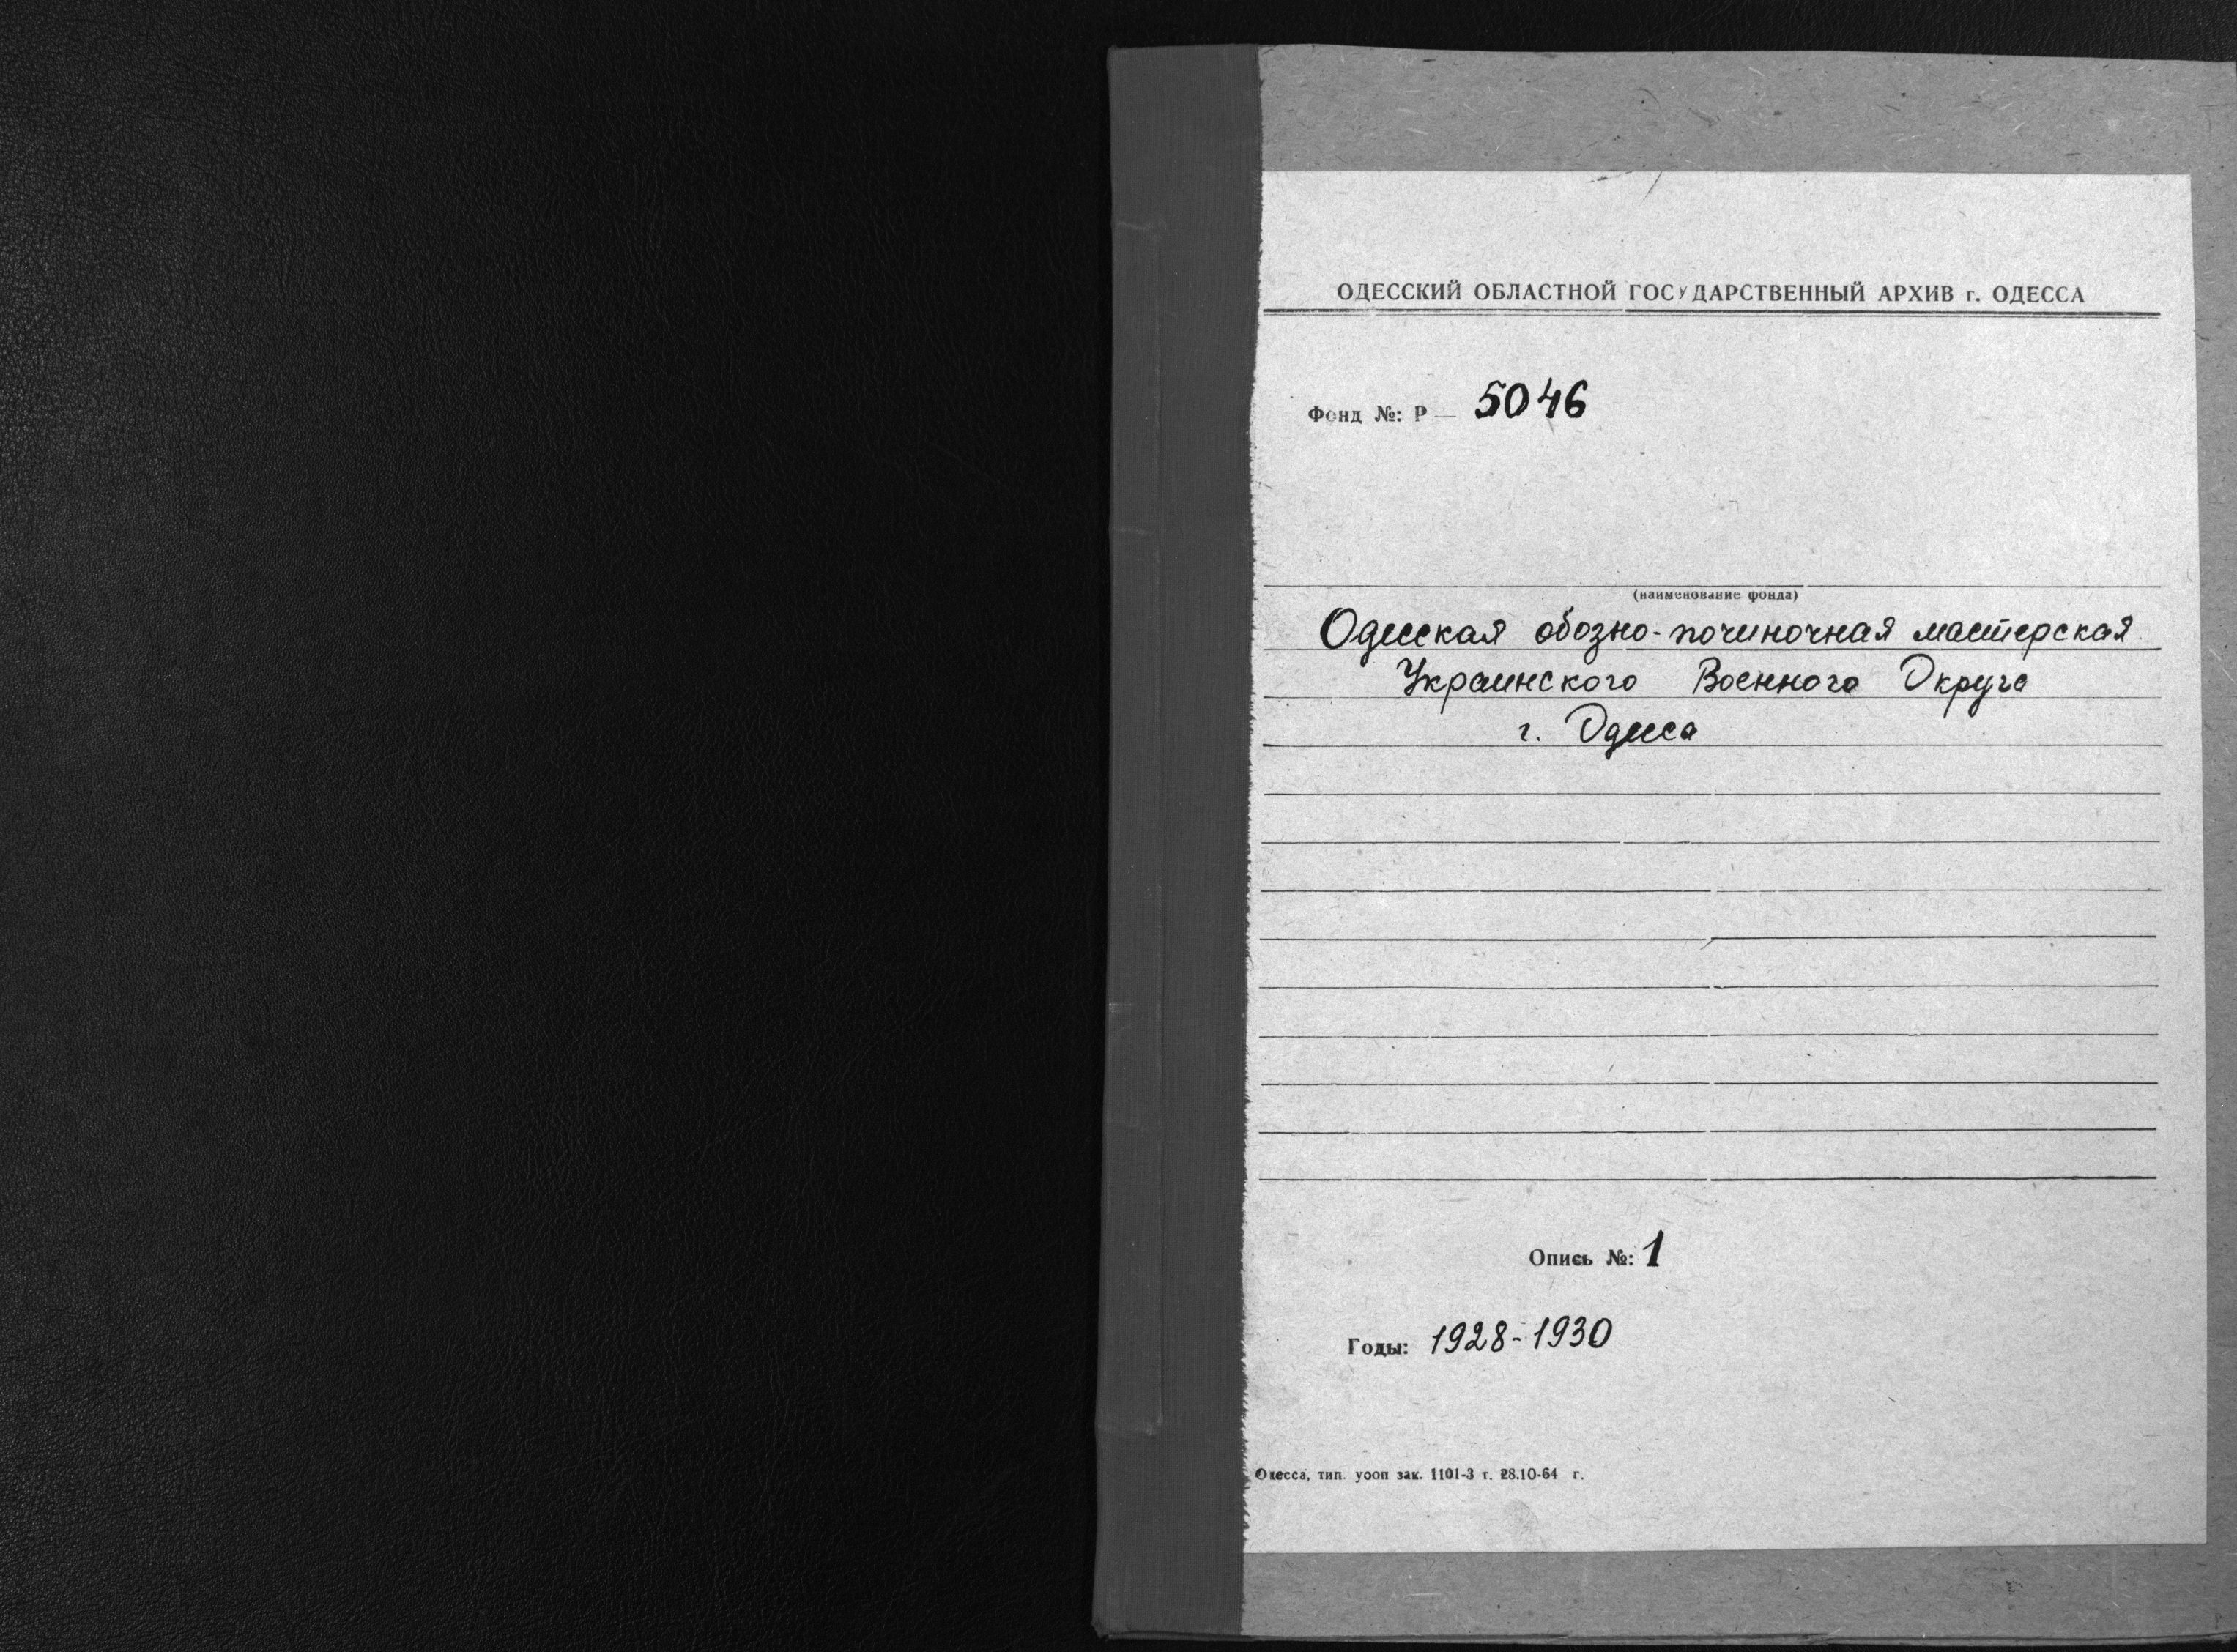 ОДЕССКИЙ ОБЛАСТНОЙ ГОСУДАРСТВЕННЫЙ АРХИВ г. ОДЕССА
Фонд №: Р — 5046
(наименование фонда)
Одесская обозно-починочная мастерская
Украинского Военного Округа
г. Одесса
Опись №: 1
Годы: 1928-1930
Одесса, тип. уооп зак. 1101-3 т. 28.10-64 г.